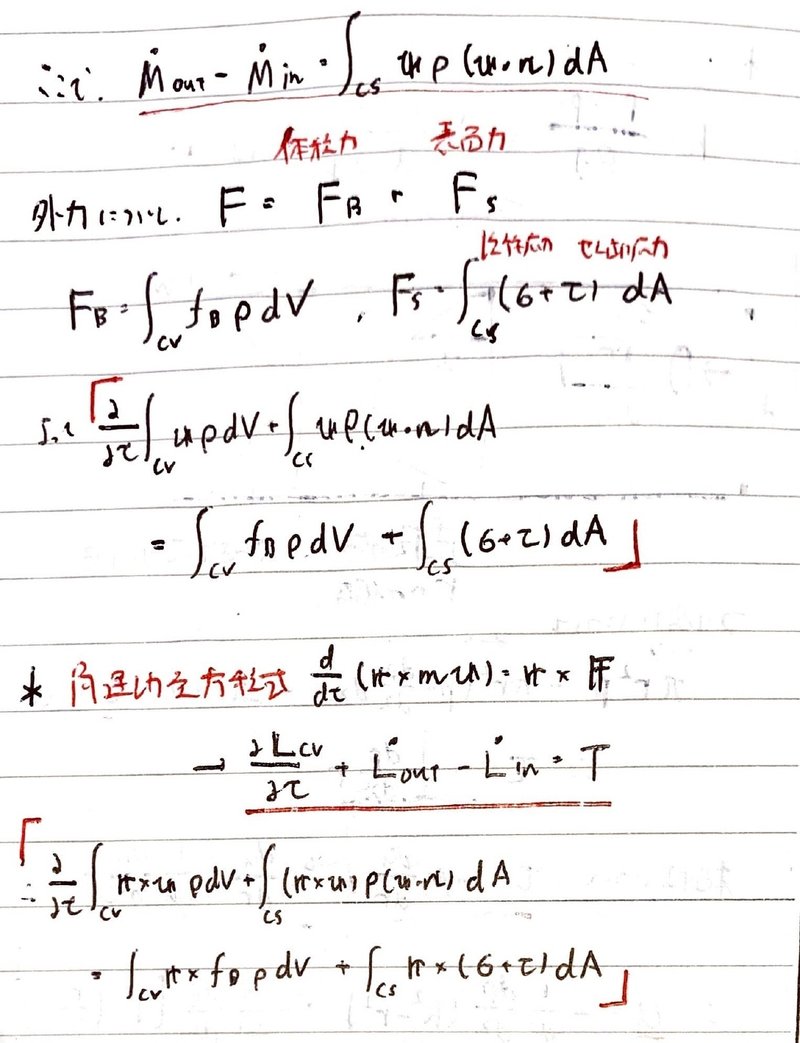 ここで. Ṁout - Ṁin = ∫cs 𝕦ρ(𝕦・𝕟)dA
体積力 表面力
外力について. F = FB + Fs
垂直応力 せん断応力
FB = ∫cv fB ρdV , Fs = ∫cs (σ+τ) dA
よって 「∂/∂t ∫cv 𝕦ρdV + ∫cs 𝕦ρ(𝕦・𝕟)dA
= ∫cv fB ρdV + ∫cs (σ+τ)dA」
* 角運動量方程式 d/dt (𝕣×m𝕦) = 𝕣×𝔽
→ ∂Lcv/∂t + L̇out - L̇in = T
「∴ ∂/∂t ∫cv 𝕣×𝕦 ρdV + ∫cs (𝕣×𝕦)ρ(𝕦・𝕟)dA
= ∫cv 𝕣×fB ρdV + ∫cs 𝕣×(σ+τ)dA」